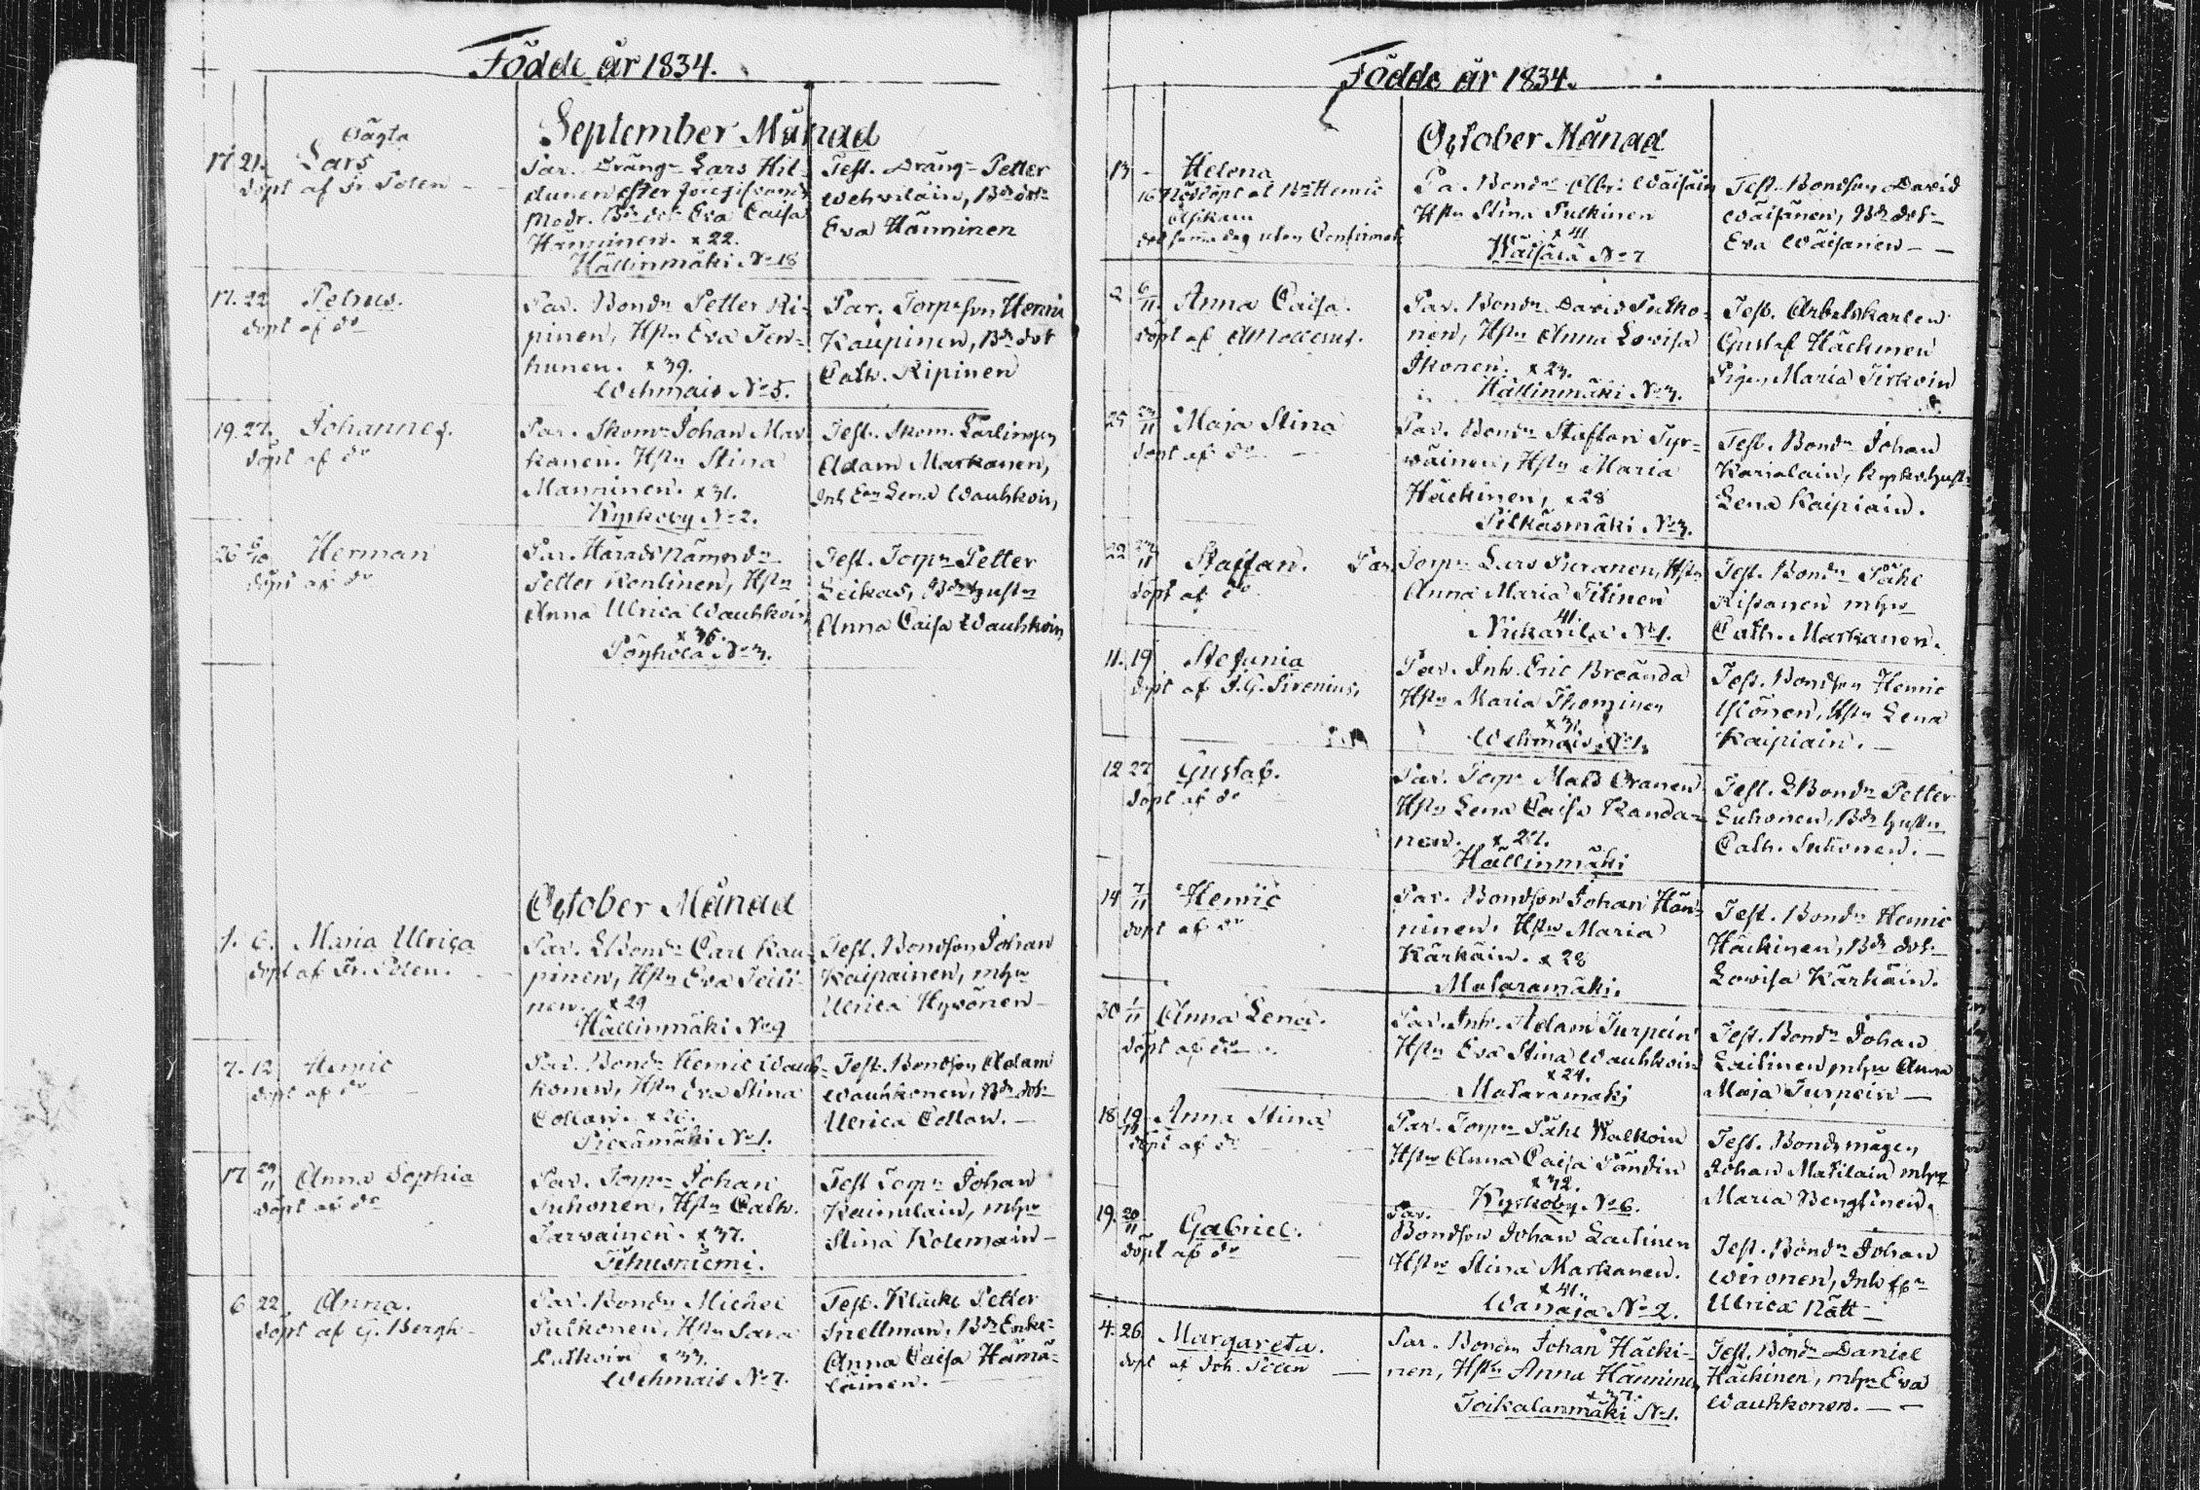 Födde år 1834.
September Månad
Oägta
17 21. Lars
döpt af Fr. Polen
Par. Dräng Lars Hil-
dunen efter foregifvande
Modr. Bdr dotr Eva Caisa
Hänninen. x 22.
Hällinmäki No 18
Test. Dräng Petter
Wehviläin, Bdr dotr
Eva Hänninen
17. 22 Petrus.
döpt af do
Par. Bondn Petter Ri-
pinen, Hstn Eva Ten-
hunen. x 39.
Wehmais No 5.
Par. Torpr son Henric
Kaupinen, Bdr dot
Cath. Ripinen
19. 27. Johannes.
döpt af do
Par. Skomr Johan Mar-
kanen. Hstn Stina
Manninen. x 31.
Kyrkoby No 2.
Test. Skom. Lärlingen
Adam Markanen,
Lena Wauhkoin,
26 6/10 Herman
döpt af do
Par. Häradsnämndn
Petter Rontinen, Hstn
Anna Ulrica Wauhkoin
x 36.
Pöyhölä No 3.
Test. Torpn Petter
Leikas, Bdr hustn
Anna Caisa Wauhkoin
October Månad
1. 6. Maria Ulrica
döpt af Fr. Polen.
Par. LBondn Carl Kau-
pinen, Hstn Eva Teiti-
nen. x 29
Hällinmäki No 9
Test. Bondson Johan
Kaipainen, mhu
Ulrica Hyvönen
7. 12 Henric
döpt af do
Par. Bondn Henric Wauh-
konen, Hstn Eva Stina
Collan. x 26.
Piexämäki No 1.
Test. Bondson Adam
Wauhkonen, Bdr dotr
Ulrica Collan.
17 29/11 Anna Sophia
döpt af do
Par. Torpn Johan
Suhonen, Hstn Cath.
Tarvainen. x 37.
Tihusniemi.
Test Torpn Johan
Kainulain, mhu
Stina Kolemain
6 22. Anna.
döpt af G. Bergh
Par. Bondn Michel
Pulkonen, Hstn Sara
Putkoin x 33.
Wehmais No 7.
Test. Klåckr Petter
Snellman, Bdr Enka
Anna Caisa Hämä-
läinen.
Födde år 1834.
October Månad
13 - Helena
16 Nöddöpt af Bdn Henric
död samma dag utan Confirmat.
Pa. Bondn Albr. Wäisäin
Hstn Stina Pulkinen
x 41
Wäisälä No 7
Test. Bondson David
Wäisänen, Bdr dotr
Eva Wäisänen
2 6/11. Anna Caisa.
döpt af A Molterus.
Par. Bondn David Pulko-
nen, Hstn Anna Lovisa
Ikonen. x 23.
Hällinmäki No 3.
Test. Arbetskarlen
Gustaf Häckinen
Pigan Maria Tirkoin
25 23/11 Maja Stina
döpt af do
Par. Bondn Staffan Tyr-
wäinen, Hstn Maria
Häckinen, x 28
Pitkäsmäki No 3.
Test. Bondn Johan
Karialain, Kyrkov. hustr
Lena Kaipiain.
22 23/11 Staffan.
döpt af do
Par. Torpn Lars Puranen, Hstn
Anna Maria Titinen
41
Niskasila No 1.
Test. Bondn Påhl
Rissanen mhu
Cath. Markanen.
11. 19 Stefania
döpt af J. G. Sirenius.
Par. Inh. Eric Breanda
Hstn Maria Thominen
x 31
Wehmais No 1.
Test. Bondson Henric
Ylönen, Hstn Lena
Kaipiain.
12 27 Gustaf.
döpt af do
Par. Torpn Mats Oranen
Hstn Lena Caisa Randa-
nen. x 27.
Hällinmäki
Test. LBondn Petter
Suhonen, Bdr hustn
Cath. Suhonen.
14 7/11 Henric
döpt af do
Par. Bondson Johan Hän-
ninen. Hstn Maria
Kärkäin. x 28
Mataramäki.
Test. Bondn Henric
Häckinen, Bdr dotr
Lovisa Kärkäin.
30 1/11 Anna Lena.
döpt af do
Par. Inh. Adam Turpein
Hstn Eva Stina Wauhkoin
x 24.
Mataramäki
Test. Bondn Johan
Laitinen mhu Anna
Maja Turpein
18 19/11 Anna Stina
döpt af do
Par. Torpn Påhl Walkoin
Hstn Anna Caisa Pändin
x 32.
Kyrkoby No 6.
Test. Bondmågen
Johan Matilain mhu
Maria Bengtinen.
19. 20/11 Gabriel.
döpt af do
Par.
Bondson Johan Laitinen
Hstn Stina Markanen.
x 41.
Wanaja No 2.
Test. Bondn Johan
Wironen, Inh
Ulrica Nätt
4. 26 Margareta.
döpt af Joh. Polen
Par. Bondn Johan Häcki-
nen, Hstn Anna Hänninen
x 37.
Toikalanmäki No 1.
Test. Bondn Daniel
Häckinen, mhu Eva
Wauhkonen.